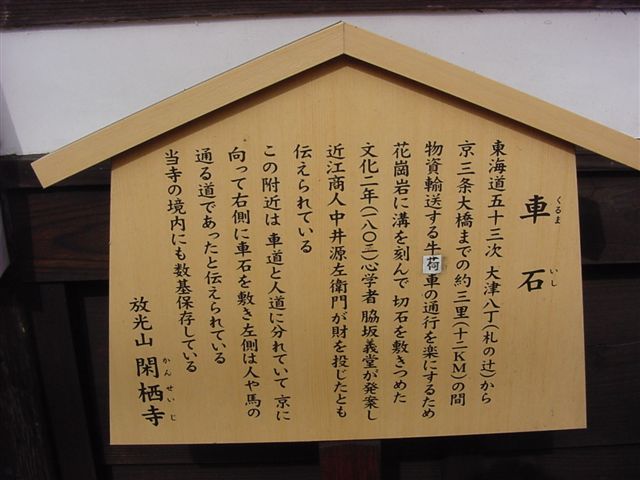 車石
くるまいし
東海道五十三次 大津八丁(札の辻)から
京三条大橋までの約三里(十二KM)の間
物資輸送する牛荷車の通行を楽にするため
花崗岩に溝を刻んで切石を敷きつめた
文化二年(一八〇三)心学者 脇坂義堂が発案し
近江商人中井源左衛門が財を投じたとも
伝えられている
この附近は 車道と人道に分れていて 京に
向って右側に車石を敷き左側は人や馬の
通る道であったと伝えられている
当寺の境内にも数基保存している
放光山 閑栖寺
かんせいじ